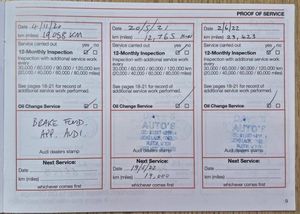 PROOF OF SERVICE
Date 4/11/20
km (miles) 19,058 KM
Service carried out yes no
12-Monthly Inspection
Inspection with additional service work every
30,000 / 60,000 / 90,000 / 120,000 km
(20,000 / 40,000 / 60,000 / 80,000 miles)
See pages 18-21 for record of
additional service work performed.
Oil Change Service
BRAKE FLUID.
APP. AUDI.
Audi dealers stamp
Next Service:
Date
km (miles)
whichever comes first
Date 20/5/21
km (miles) 12,765
Service carried out yes no
12-Monthly Inspection
Inspection with additional service work every
30,000 / 60,000 / 90,000 / 120,000 km
(20,000 / 40,000 / 60,000 / 80,000 miles)
See pages 18-21 for record of
additional service work performed.
Oil Change Service
AUTO'S
Audi dealers stamp
Next Service:
Date 19/5/22
km (miles) 19,000
whichever comes first
Date 2/6/22
km (miles) 23,423
Service carried out yes no
12-Monthly Inspection
Inspection with additional service work every
30,000 / 60,000 / 90,000 / 120,000 km
(20,000 / 40,000 / 60,000 / 80,000 miles)
See pages 18-21 for record of
additional service work performed.
Oil Change Service
AUTO'S
Audi dealers stamp
Next Service:
Date
km (miles)
whichever comes first
9